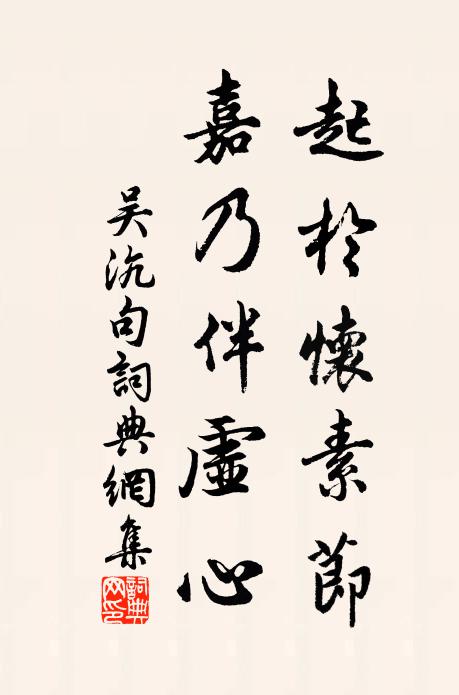 起於懷素節
嘉乃伴虛心
吴沆句詞典網集
詞典網印